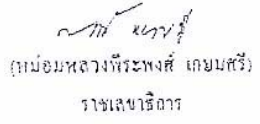 (หม่อมหลวงพีระพงศ์ เกษมศรี)
ราชเลขาธิการ